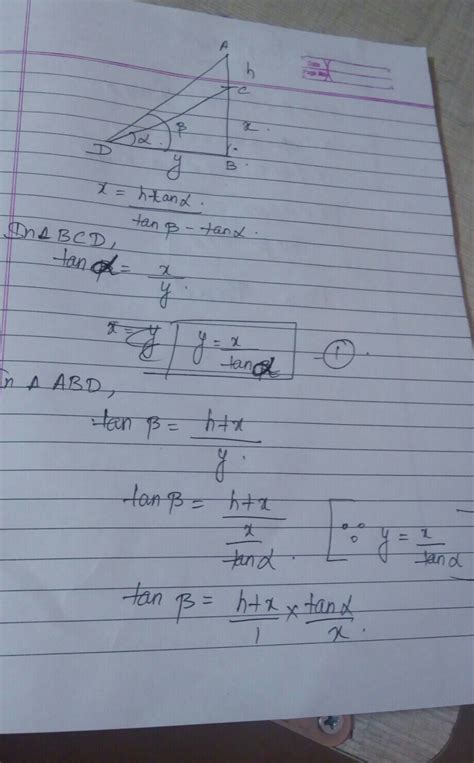 Date
Page No.
A
h
C
β
x.
α
D
y
B
x = h tanα.
tanβ - tanα.
In Δ BCD,
tan α = x
y.
x = y | y = x — ①.
tan α
In Δ ABD,
tan β = h+x
y.
tan β = h+x
x
tanα. [∵ y = x
tanα]
tan β = h+x × tanα
1 x.